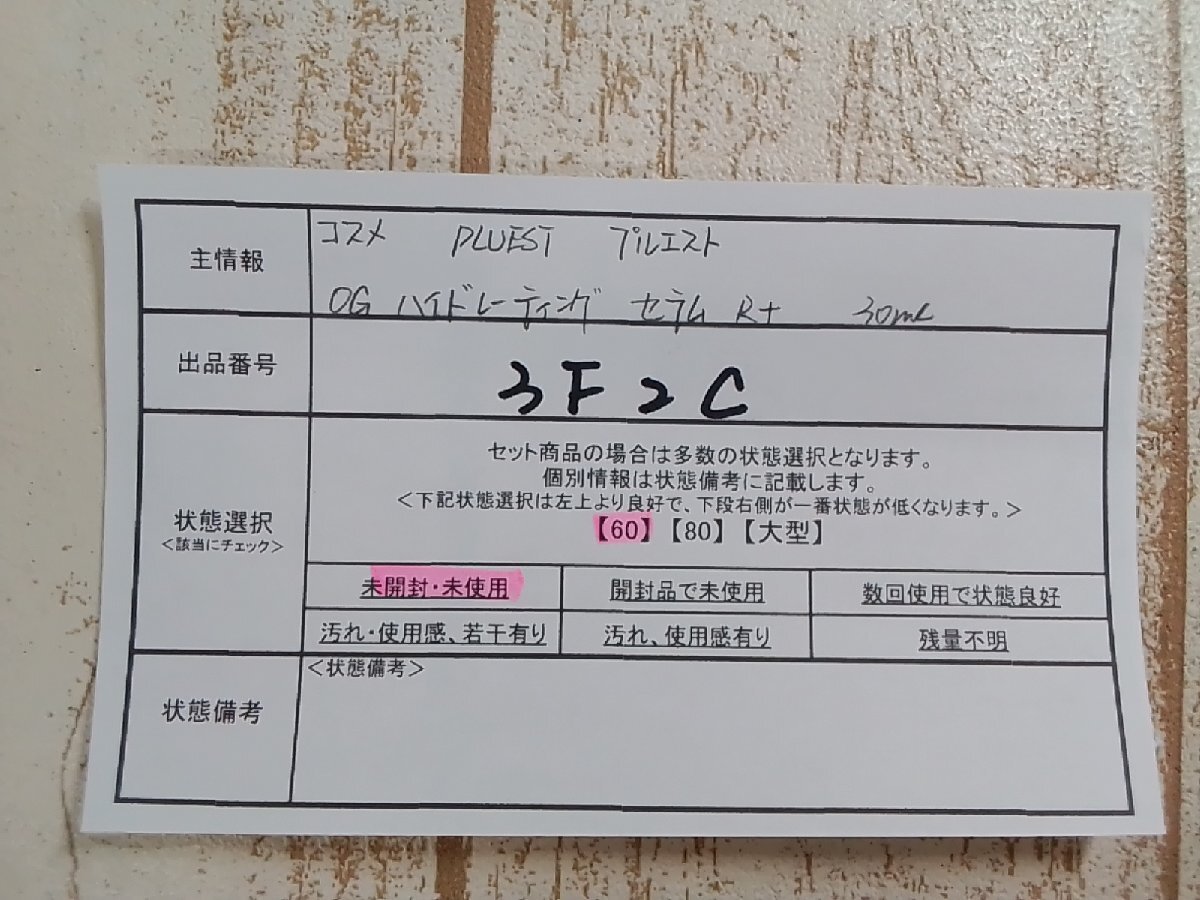 主情報
コスメ PLUEST プルエスト
OG ハイドレーティング セラム R+ 30mL
出品番号
3F2C
状態選択
<該当にチェック>
セット商品の場合は多数の状態選択となります。
個別情報は状態備考に記載します。
<下記状態選択は左上より良好で、下段右側が一番状態が低くなります。>
【60】【80】【大型】
未開封・未使用 開封品で未使用 数回使用で状態良好
汚れ・使用感、若干有り 汚れ、使用感有り 残量不明
状態備考
<状態備考>